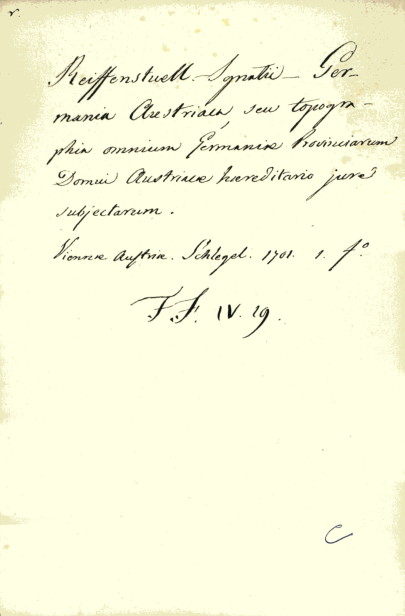 r.
Reiffenstuell. Ignatii – Ger-
mania Austriaca, seu topogra-
phia omnium Germaniæ Provinciarum
Domui Austriacæ hæreditario jure
subjectarum.
Viennæ Austriæ. Schlegel. 1701. 1. fº
F. F. IV. 19.
C